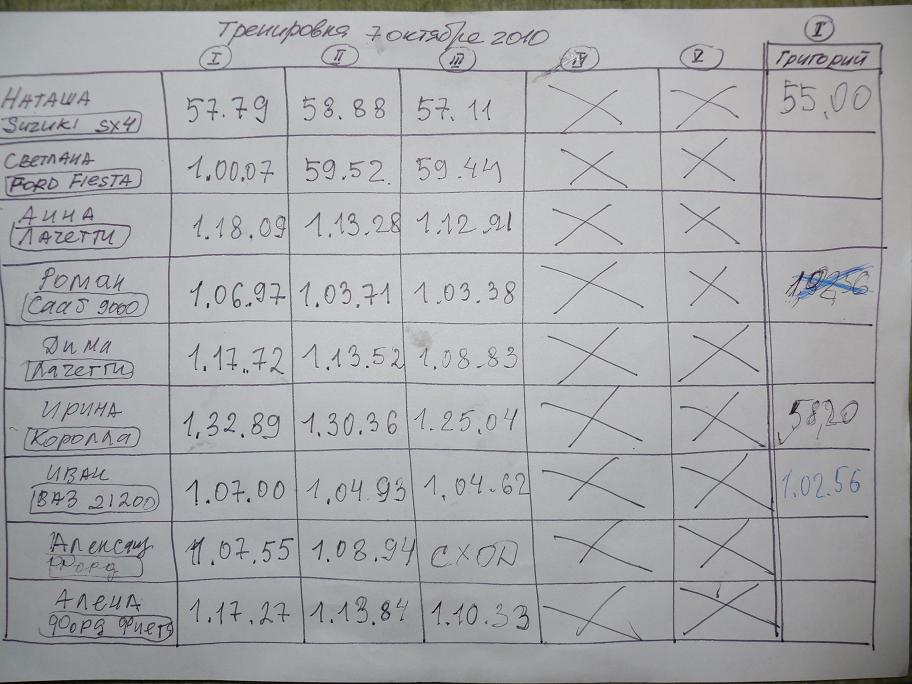 Тренировка 7 октября 2010
I II III IV V I
Григорий
Наташа 57.79 58.88 57.11 55,00
Suzuki SX4
Светлана 1.00.07 59.52 59.44
Ford Fiesta
Анна 1.18.09 1.13.28 1.12.21
Лачетти
Роман 1.06.97 1.03.71 1.03.38
Сааб 9000
Дима 1.17.72 1.13.52 1.08.83
Лачетти
Ирина 1.32.89 1.30.36 1.25.04 58,20
Королла
Иван 1.07.00 1.04.93 1.04.62 1.02.56
ВАЗ 21200
1.07.55 1.08.94 сход
Форд
Алена 1.17.27 1.13.84 1.10.33
Форд